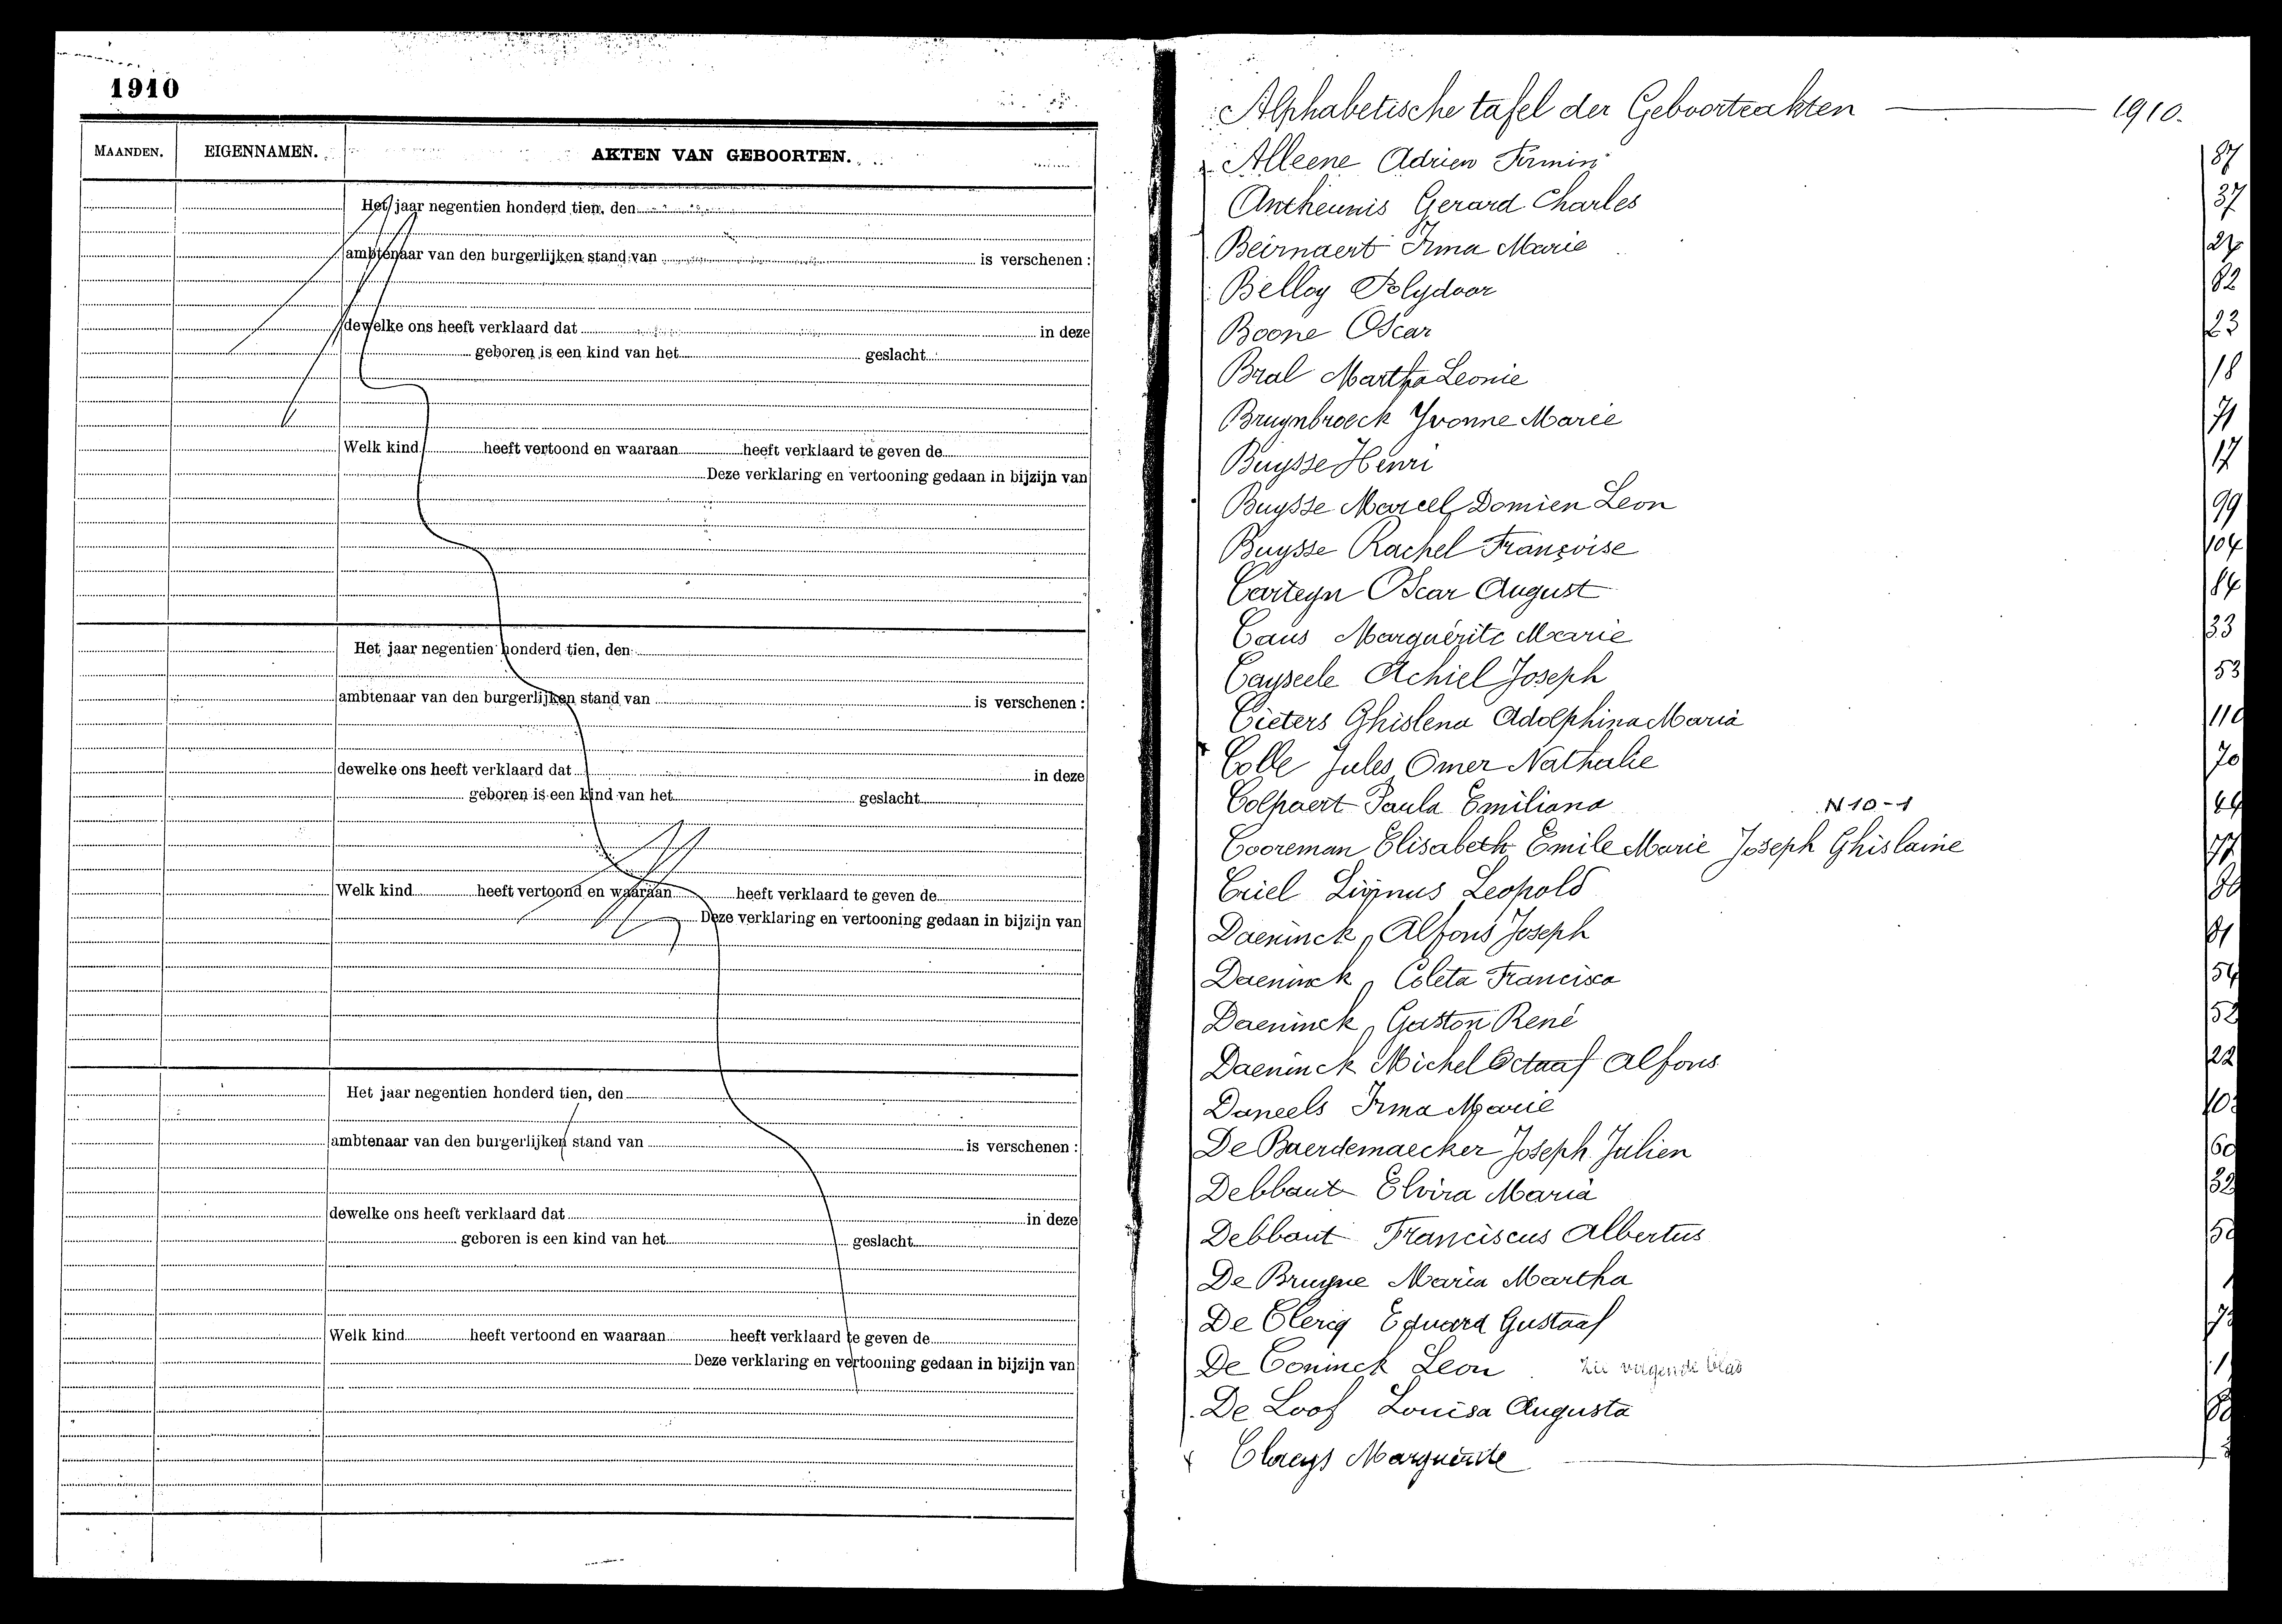 1910
MAANDEN.
EIGENNAMEN.
AKTEN VAN GEBOORTEN.
Het jaar negentien honderd tien, den
ambtenaar van den burgerlijken stand van is verschenen :
dewelke ons heeft verklaard dat in deze
geboren is een kind van het geslacht
Welk kind heeft vertoond en waaraan heeft verklaard te geven de
Deze verklaring en vertooning gedaan in bijzijn van
Het jaar negentien honderd tien, den
ambtenaar van den burgerlijken stand van is verschenen :
dewelke ons heeft verklaard dat in deze
geboren is een kind van het geslacht
Welk kind heeft vertoond en waaraan heeft verklaard te geven de
Deze verklaring en vertooning gedaan in bijzijn van
Het jaar negentien honderd tien, den
ambtenaar van den burgerlijken stand van is verschenen :
dewelke ons heeft verklaard dat in deze
geboren is een kind van het geslacht
Welk kind heeft vertoond en waaraan heeft verklaard te geven de
Deze verklaring en vertooning gedaan in bijzijn van
Alphabetische tafel der Geboorteakten 1910.
Alleene Adrien Firmin 87
Antheunis Gerard Charles 37
Beirnaert Irma Marie 27
Belloy Polydoor 82
Boone Oscar 23
Bral Martha Leonie 18
Bruynbroeck Yvonne Marie 71
Buysse Henri 17
Buysse Marcel Domien Leon 99
Buysse Rachel Françoise 104
Carteyn Oscar August 84
Caus Marguérite Marie 33
Cayseele Achiel Joseph 53
Cieters Ghislena Adolphina Maria 110
Colle Jules Omer Nathalie 70
Colpaert Paula Emiliana N 10-1
Cooreman Elisabeth Emile Marie Joseph Ghislaine 77
Criel Leopold
Daeninck, Alfons Joseph
Daeninck, Coleta Francisca 54
Daeninck, Gaston René 52
Daeninck Michel Octaaf Alfons 22
Daneels Irma Marie
De Baerdemaecker Joseph Julien
Debbaut Elvira Maria
Debbaut Franciscus Albertus
De Bruyne Maria Martha
De Clerq Eduard Gustaaf
De Coninck Leon
De Loof Louisa Augusta
Claeys Marguérite